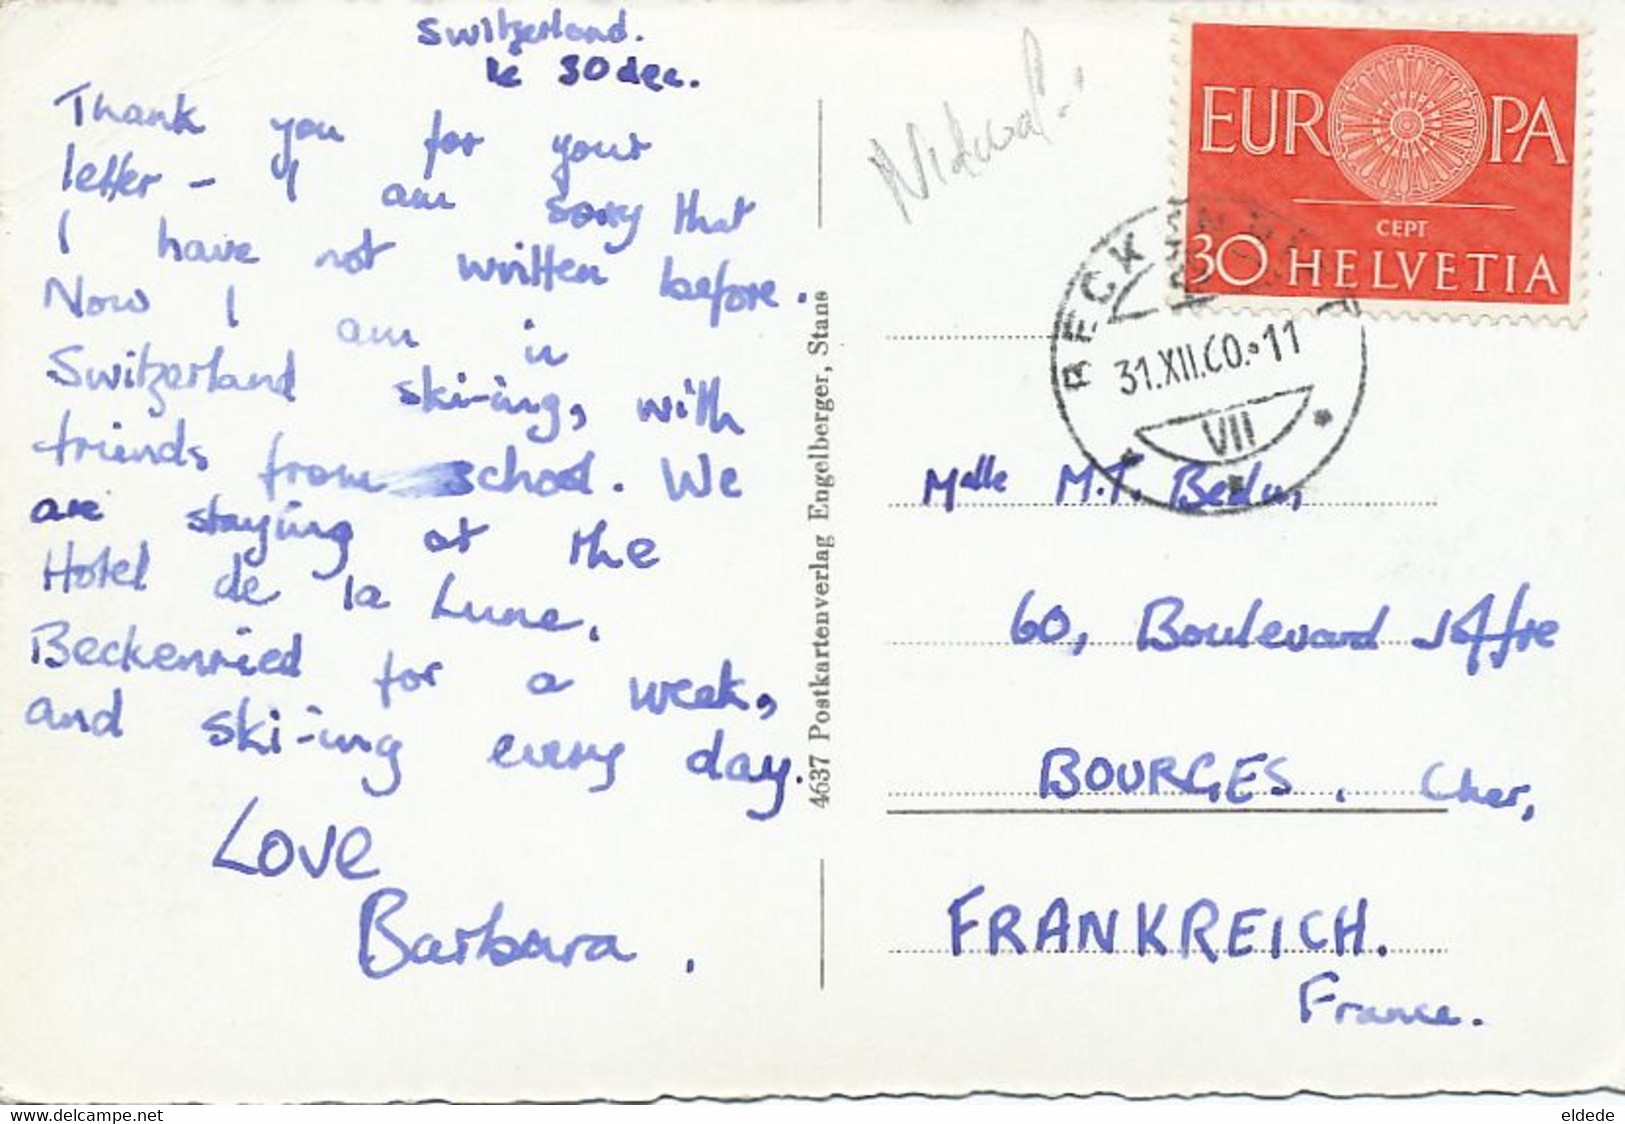 Switzerland.
le 30 dec.
Thank you for your
letter - I am sorry that
I have not written before.
Now I am in
Switzerland ski-ing, with
friends from school. We
are staying at the
Hotel de la Lune,
Beckenried for a week,
and ski-ing every day.
Love
Barbara.
4637 Postkartenverlag Engelberger, Stans
EUROPA
CEPT
30 HELVETIA
BECKENRIED
31.XII.60.-11
VII
Melle M.T.
60, Boulevard Joffre
BOURGES. Cher,
FRANKREICH.
France.
www.delcampe.net
eldede